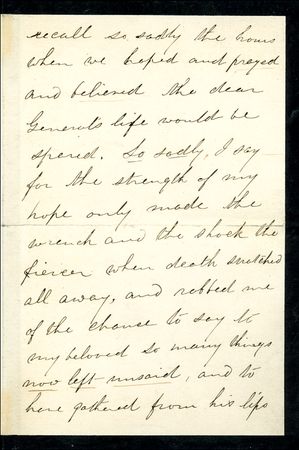 recall so sadly the hours
when we hoped and prayed
and believed the dear
General's life would be
spared. So sadly, I say
for the strength of my
hope only made the
wrench and the shock the
fiercer when death snatched
all away, and robbed me
of the chance to say to
my beloved so many things
now left unsaid, and to
have gathered from his lips